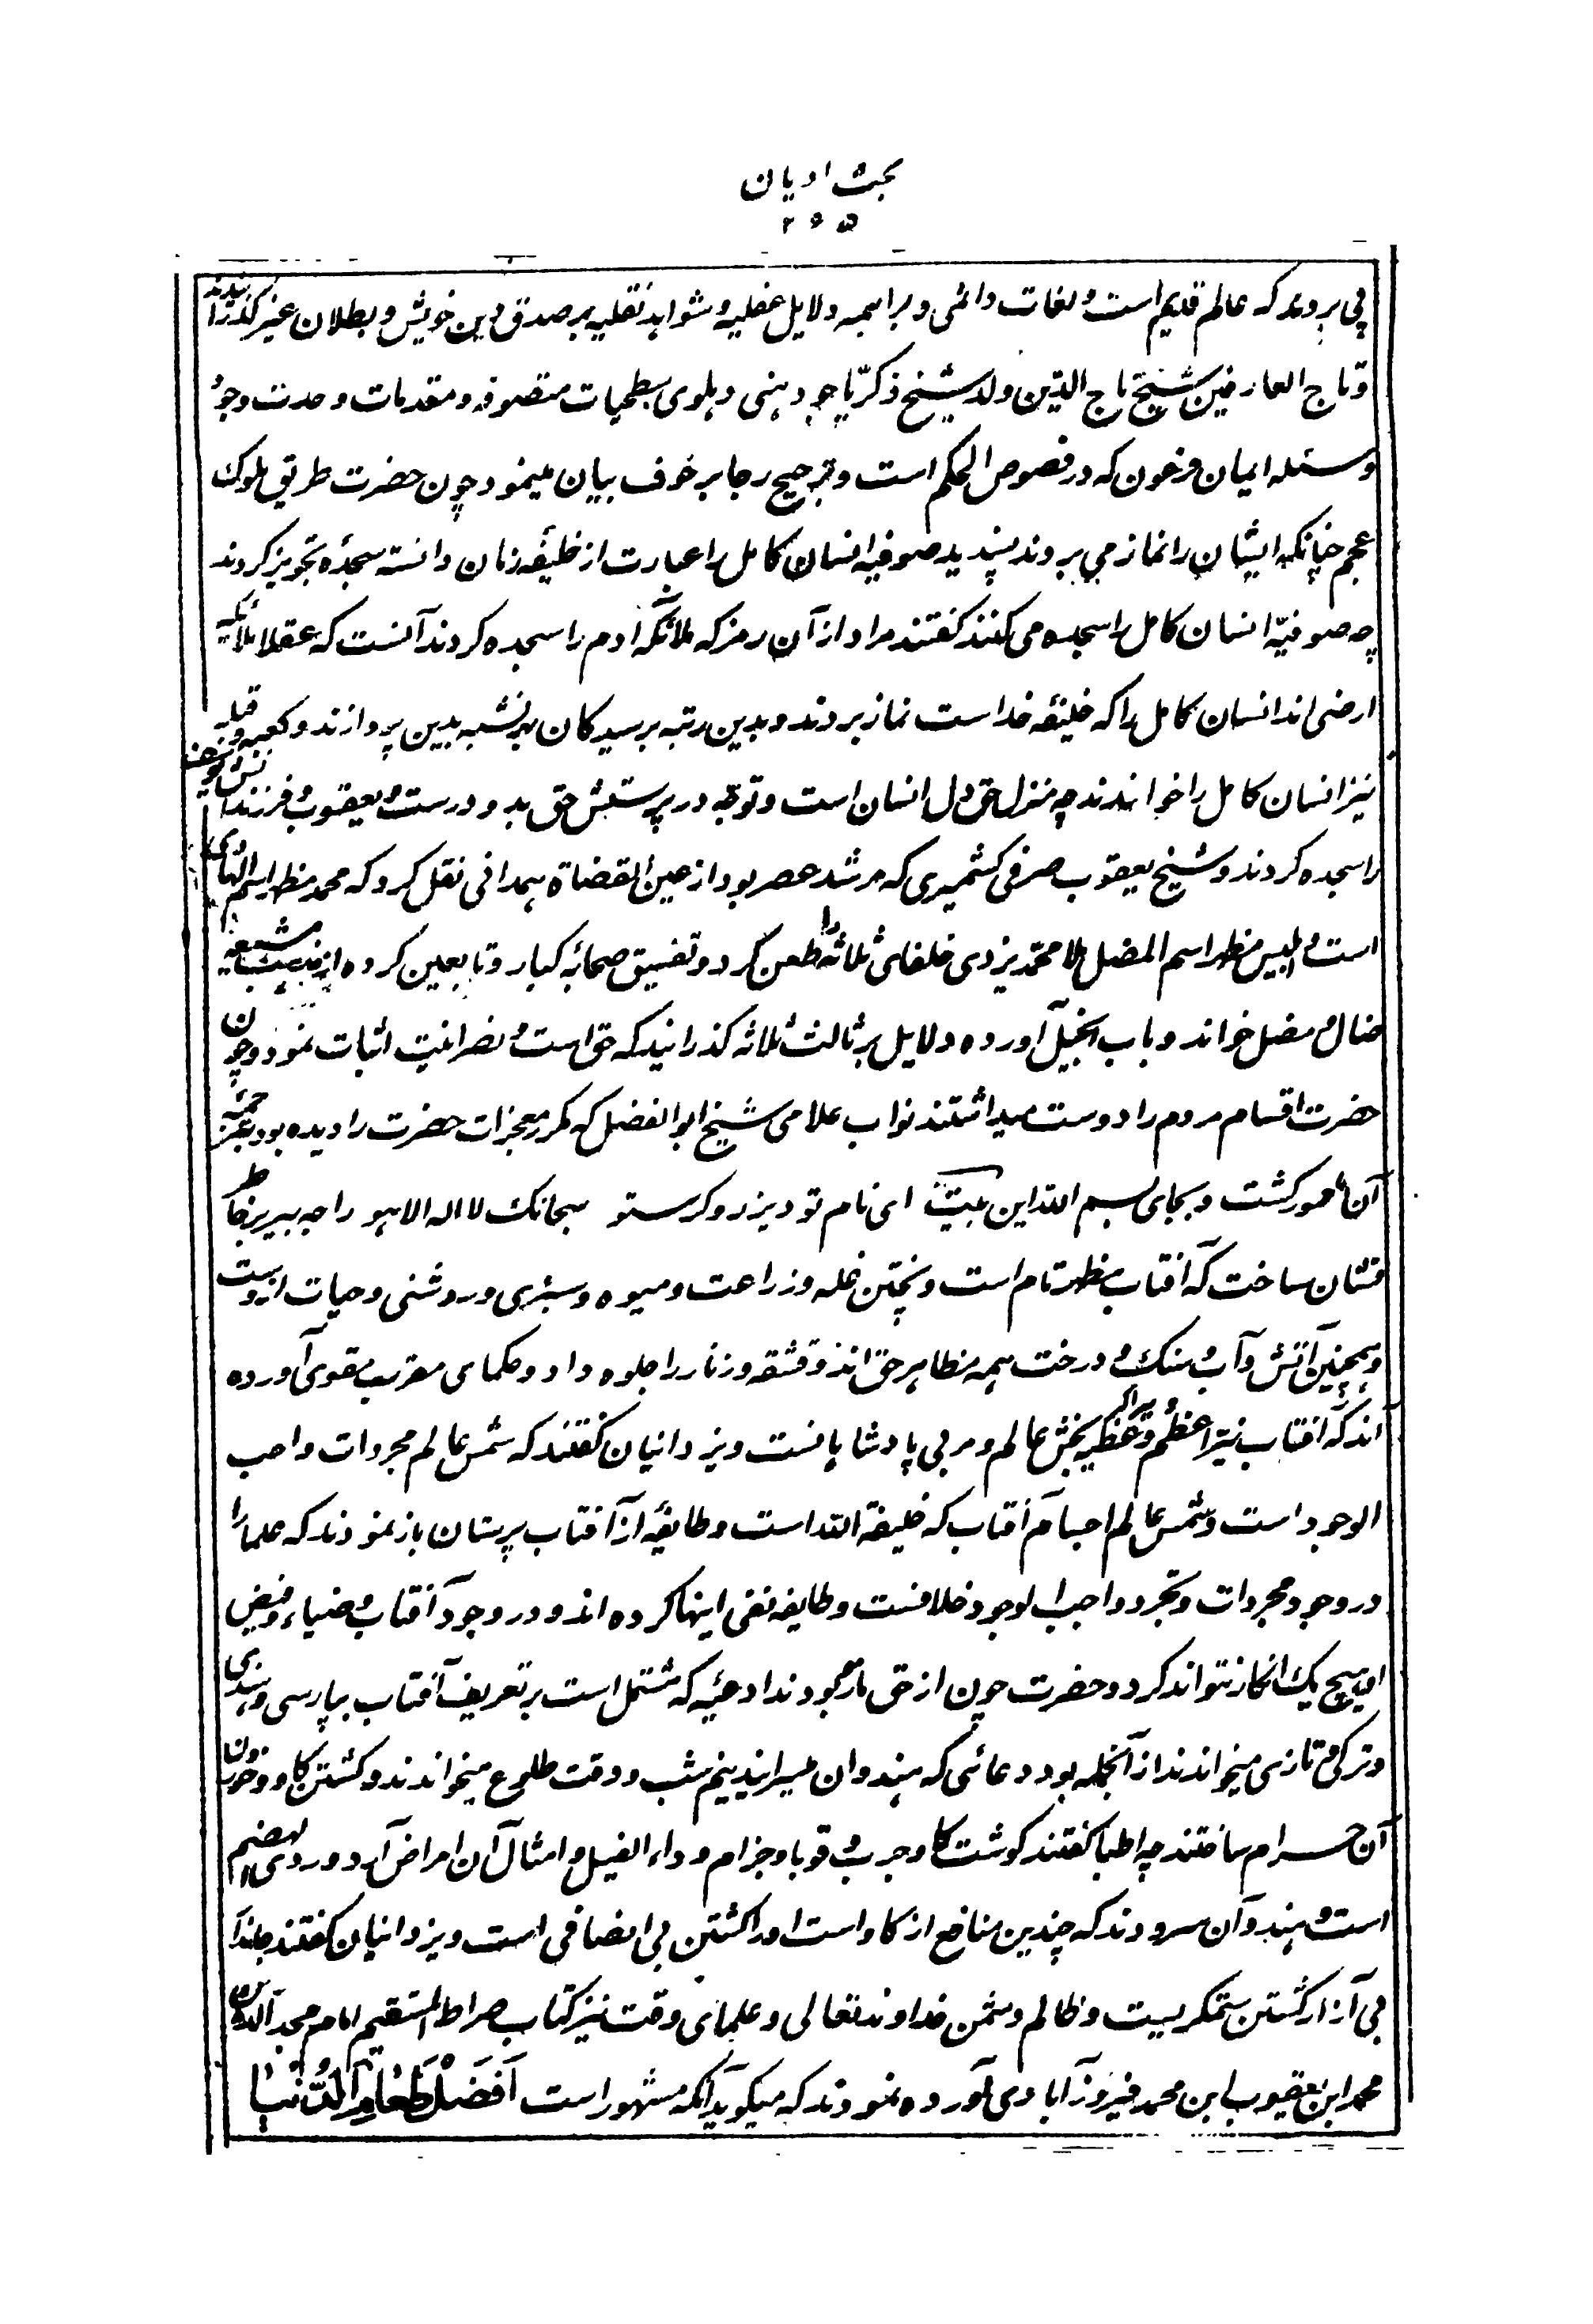 بحث ادیان
۲۶۵
پی بروند که عالم قدیم است و لغات دائمی و براهمه دلایل عقلیه و شواهد نقلیه بر صدق دین خویش و بطلان غیر گذرانیدند
و تاج العارفین شیخ تاج الدین ولد شیخ ذکریا جودهنی دهلوی بطحیات متصوفه و مقدمات وحدت وجود
و مسئله ایمان فرعون که در فصوص الحکم است و ترجیح رجا بر خوف بیان مینمود چون حضرت طریق ملوک
عجم چنانکه ایشان را نماز می بروند پسندید صوفیه انسان کامل را عبارت از خلیفه زمان دانسته سجده تجویز کردند
چه صوفیه انسان کامل را سجده می کنند گفتند مراد از آن رمز که ملائکه ادم را سجده کردند آنست که عقلا ملائکه
ارضی اند انسان کامل را که خلیفه خداست نماز بردند و بدین رتبه برسید کان بدین پردازند و کعبه و قبله
نیز انسان کامل را خوانند چه منزل حق دل انسان است و توجه در پرستش حق بدو درست و یعقوب و فرزندانش یوسف
را سجده کردند و شیخ یعقوب صرفی کشمیری که مرشد عصر بود از عین القضاة همدانی نقل کرد که محمد مظهر اسم الهادی
است و ابلیس مظهر اسم المضل ملا محمد یزدی خلفای ثلاثه را طعن کرد و تفسیق صحابه کبار و تابعین کرده
ضال و مضل خواند و باب انجیل آورده دلایل بر ثالث ثلاثه گذرانید که حق است و نصرانیت اثبات نمود و چون
حضرت اقسام مردم را دوست میداشتند نواب علامی شیخ ابوالفضل که مکرر معجزات حضرت را دیده بود
آن مامور گشت و بجای بسم الله این بیت ای نام تو دیزر و کرستو سبحانک لا اله الا هو راجه بیربر خاطر
نشان ساخت که آفتاب مظهر تام است و پختن غله و زراعت و میوه و سبزی و روشنی و حیات ازوست
و همچنین آتش و آب و سنک و درخت همه مظاهر حق اند و قشقه و زنار را جلوه داد و حکمای مقرب مقوی آورده
اند که آفتاب نیر اعظم و عطیه بخش عالم و مربی پادشاهانست و یزدانیان گفتند که شمس عالم مجردات واجب
الوجود است و شمس عالم اجسام آفتاب که خلیفة الله است و طایفه از آفتاب پرستان باز نمودند که علما را
در وجود مجردات و تجرد واجب الوجود خلافست و طایفه نفی اینها کرده اند و در وجود آفتاب و ضیاء و فیض
او هیچ یک انکار نتواند کرد و حضرت چون از حق مامور بودند ادعیه که مشتمل است بر تعریف آفتاب بپارسی و هندی
و ترکی و تازی میخواندند از آنجمله بود دعائی که هندوان نیم شب و وقت طلوع میخوانند و کشتن کاو و خوردن
آن حرام ساختند چه اطبا گفتند کوشت کاو جرب و قوبا و جزام و داء الفیل و امثال آن امراض آرد و ردی الهضم
است و هندوان سرودند که چندین منافع از کاو است او را کشتن بی انصافی است و یزدانیان گفتند جاندار
بی آزار کشتن ستمکریست و ظالم دشمن خداوند تعالی و علمای وقت نیز کتاب صراط المستقیم امام مجد الدین
محمد ابن یعقوب ابن محمد فیروزآبادی آورده نمودند که میکوید آنکه مشهور است اَفضَل طَعامِ الدُّنیا